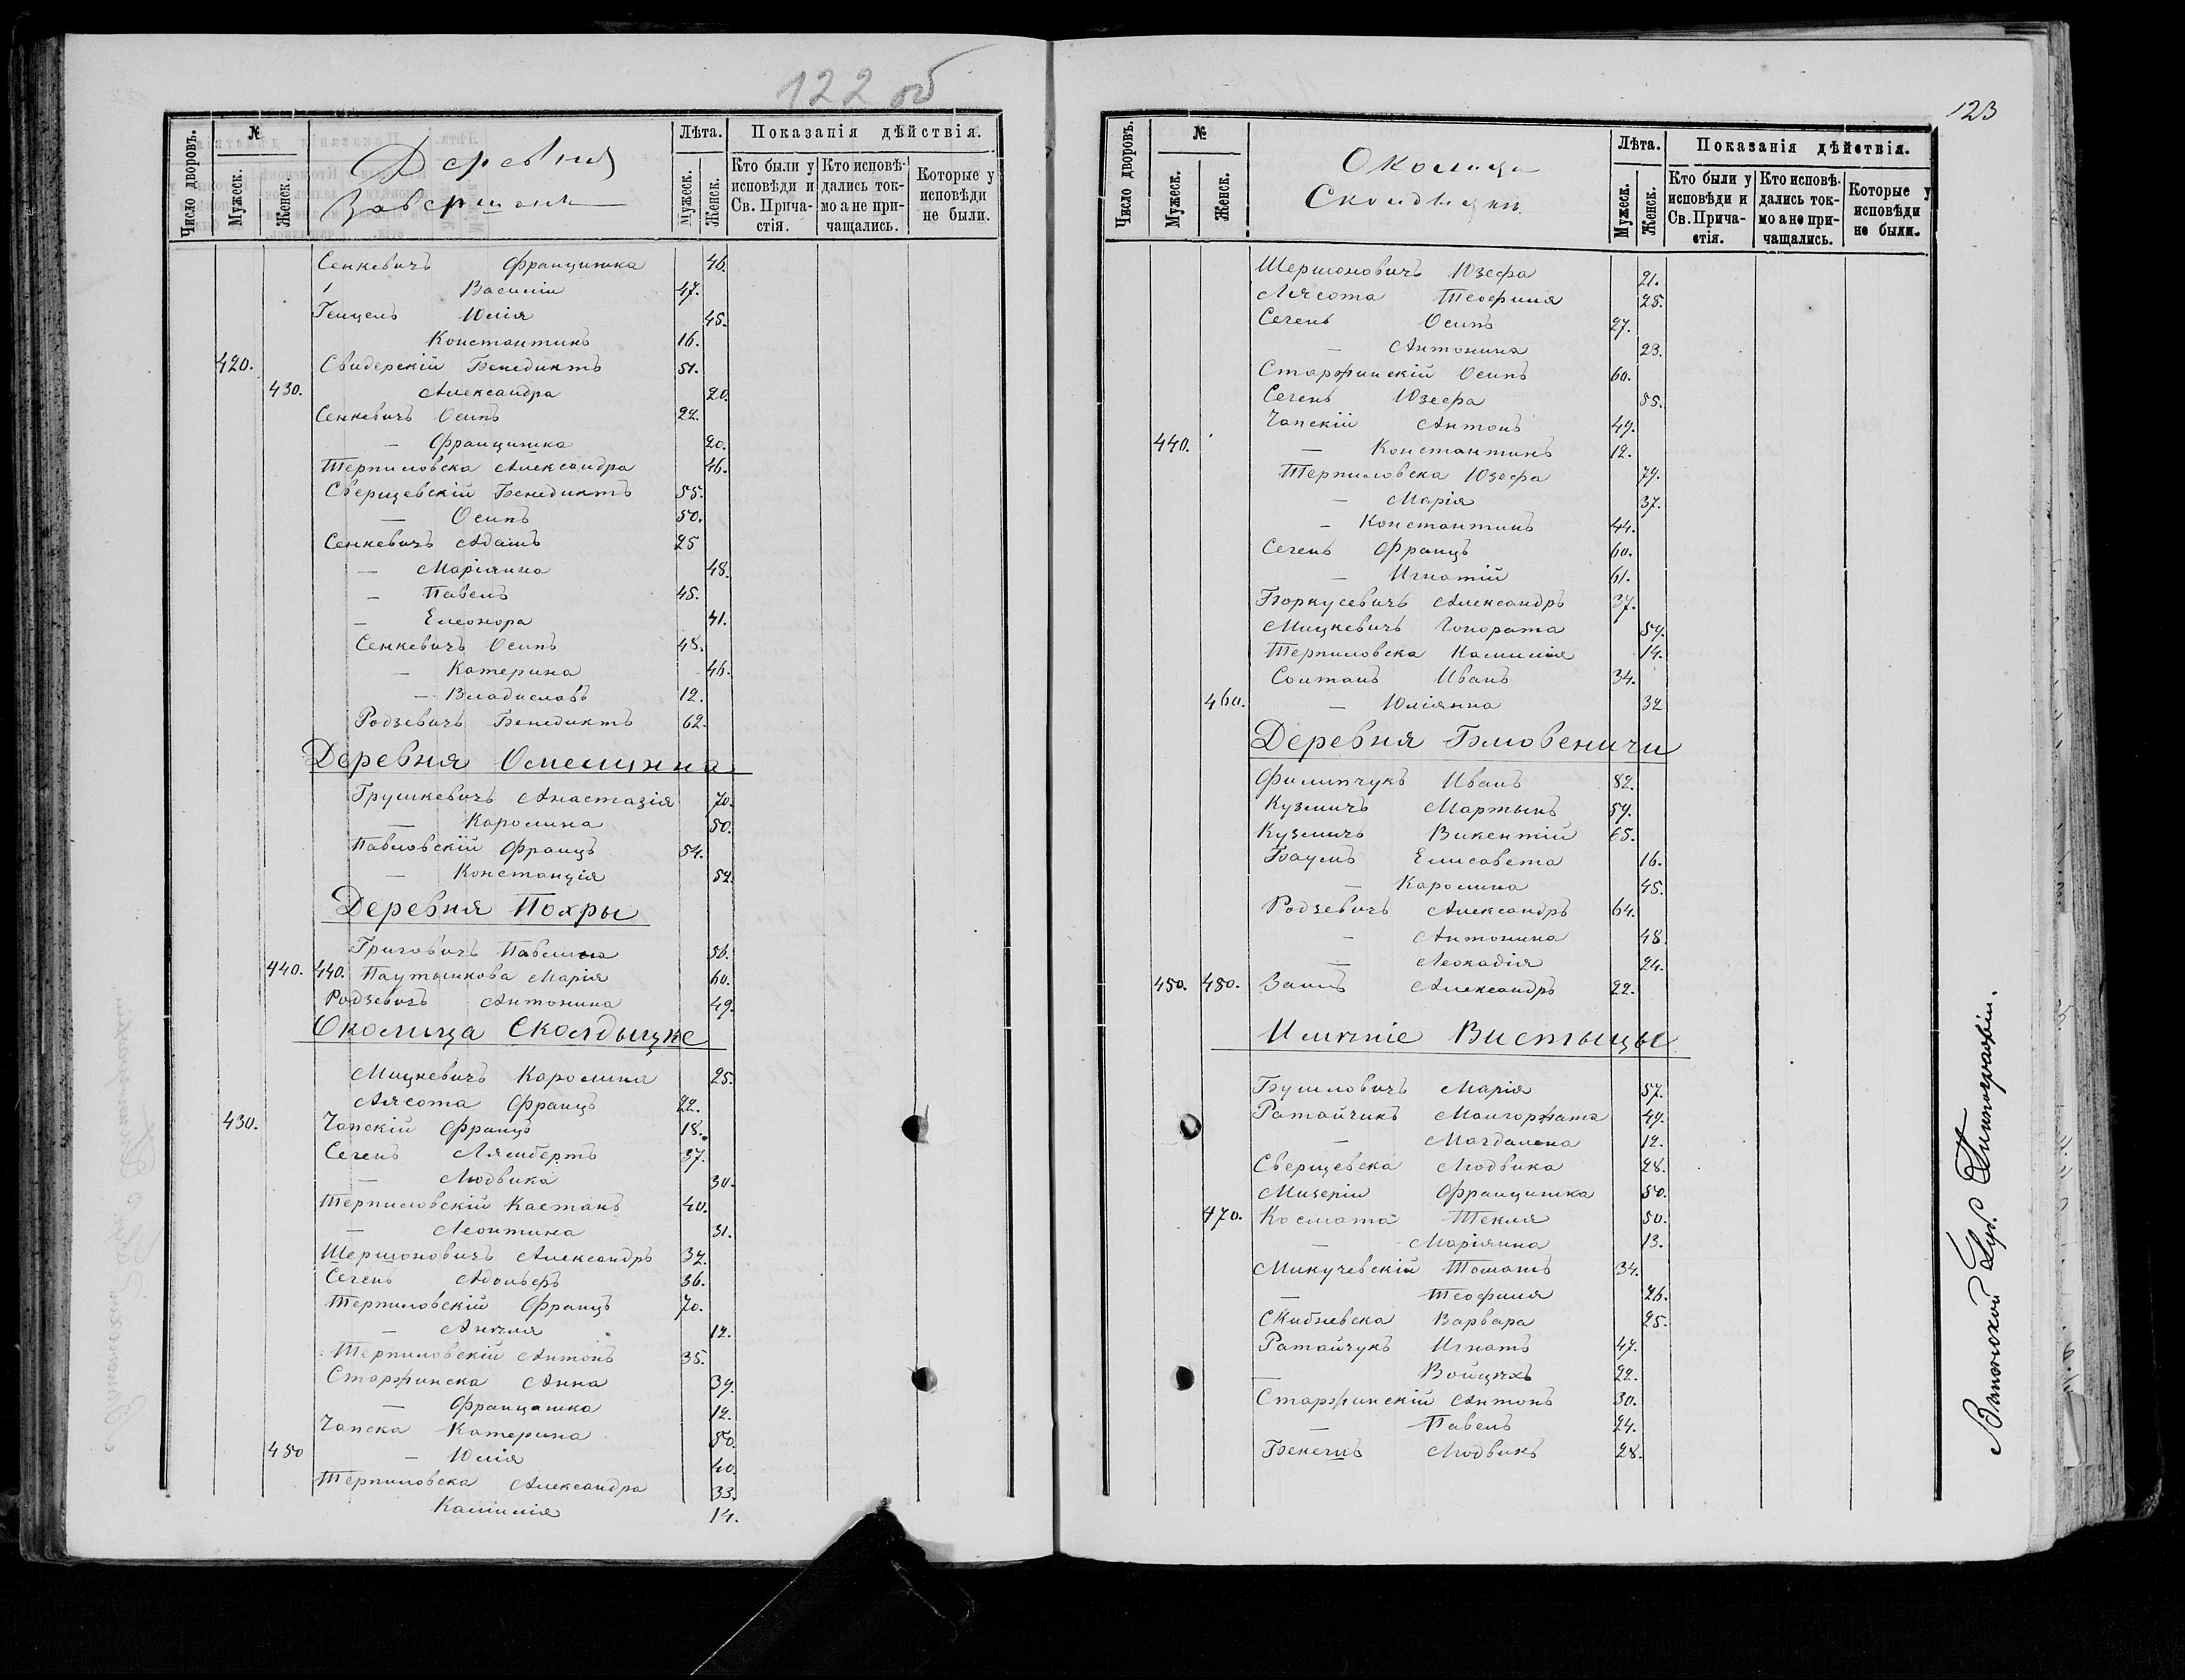 122 об
Число дворовъ. № Мужеск. Женск. Деревня Завершаны Лѣта. Мужеск. Женск. Показанія дѣйствія.
Кто были у исповѣди и Св. Причастія. Кто исповѣдались токмо а не причащались. Которые у исповѣди не были.
Сенкевичъ Францишка 46.
Василій 47.
Генцель Юлія 45.
Константинъ 16.
420. Свидерскій Бенедиктъ 51.
430. Александра 20.
Сенкевичъ Осипъ 22.
— Францишка 20.
Терпиловска Александра 46.
Сверщевскій Бенедиктъ 55.
— Осипъ 50.
Сенкевичъ Адамъ 25
— Маріянна 48.
— Павелъ 45.
— Елеонора 41.
Сенкевичъ Осипъ 48.
— Катерина 46.
— Владиславъ 12.
Родзевичъ Бенедиктъ 62.
Деревня Омелинна
Грушкевичъ Анастазія 70.
— Каролина 50.
Павловскій Францъ 54.
— Констанція 52.
Деревня Похры
Григовичъ Павлина 56.
440. 440. Паутынкова Марія 60.
Родзевичъ Антонина 49.
Околица Сколдыцке
Мицкевичъ Каролина 25.
Лясота Францъ 22.
430. Чапскій Францъ 18.
Сегень Лямбертъ 37.
— Людвика 30.
Терпиловскій Каетанъ 40.
— Леонтина 31.
Шершоновичъ Александръ 32.
Сегень Адольфъ 36.
Терпиловскій Францъ 70.
— Анѣля 12.
Терпиловскій Антонъ 35.
Старжинска Анна 39.
— Францишка 12.
Чапска Катерина 50.
450 — Юлія 40.
Терпиловска Александра 33.
Камилія 14.
123
Число дворовъ. № Мужеск. Женск. Околица Сколдыцки Лѣта. Мужеск. Женск. Показанія дѣйствія.
Кто были у исповѣди и Св. Причастія. Кто исповѣдались токмо а не причащались. Которые у исповѣди не были.
Шершоновичъ Юзефа 21.
Лясота Теофиля 25.
Сегень Осипъ 27.
— Антонина 23.
Старжинскій Осипъ 60.
Сегень Юзефа 55.
Чапскій Антонъ 49.
440. — Константинъ 12.
Терпиловска Юзефа 79.
— Марія 37.
— Константинъ 44.
Сегень Францъ 60.
— Игнатій 61.
Боркусевичъ Александръ 37.
Мицкевичъ Гонората 59.
Терпиловска Камилія 14.
Солтанъ Иванъ 34.
460. — Юліянна 32
Деревня Бловеничи
Филипчукъ Иванъ 82.
Кузмичъ Мартынъ 59.
Кузмичъ Викентій 65.
Баумъ Елисавета 16.
— Каролина 45.
Родзевичъ Александръ 64.
— Антонина 48.
— Леокадія 24.
450. 480. Заимъ Александръ 22.
Имѣніе Вистыцы
Бушловичъ Марія 57.
Ратайчикъ Малгоржата 49.
— Магдалена 12.
Сверщевска Людвика 28.
Мизеріи Францишка 50.
470. Космата Текля 50.
— Маріянна 13.
Микучевскій Томашъ 34.
— Теофиля 26.
Скибневска Варвара 25.
Ратайчукъ Игнатъ 47.
— Войцѣхъ 22.
Старжинскій Антонъ 30.
— Павелъ 24.
Бекешъ Людвикъ 28.
Виленской Губ. Типографіи.